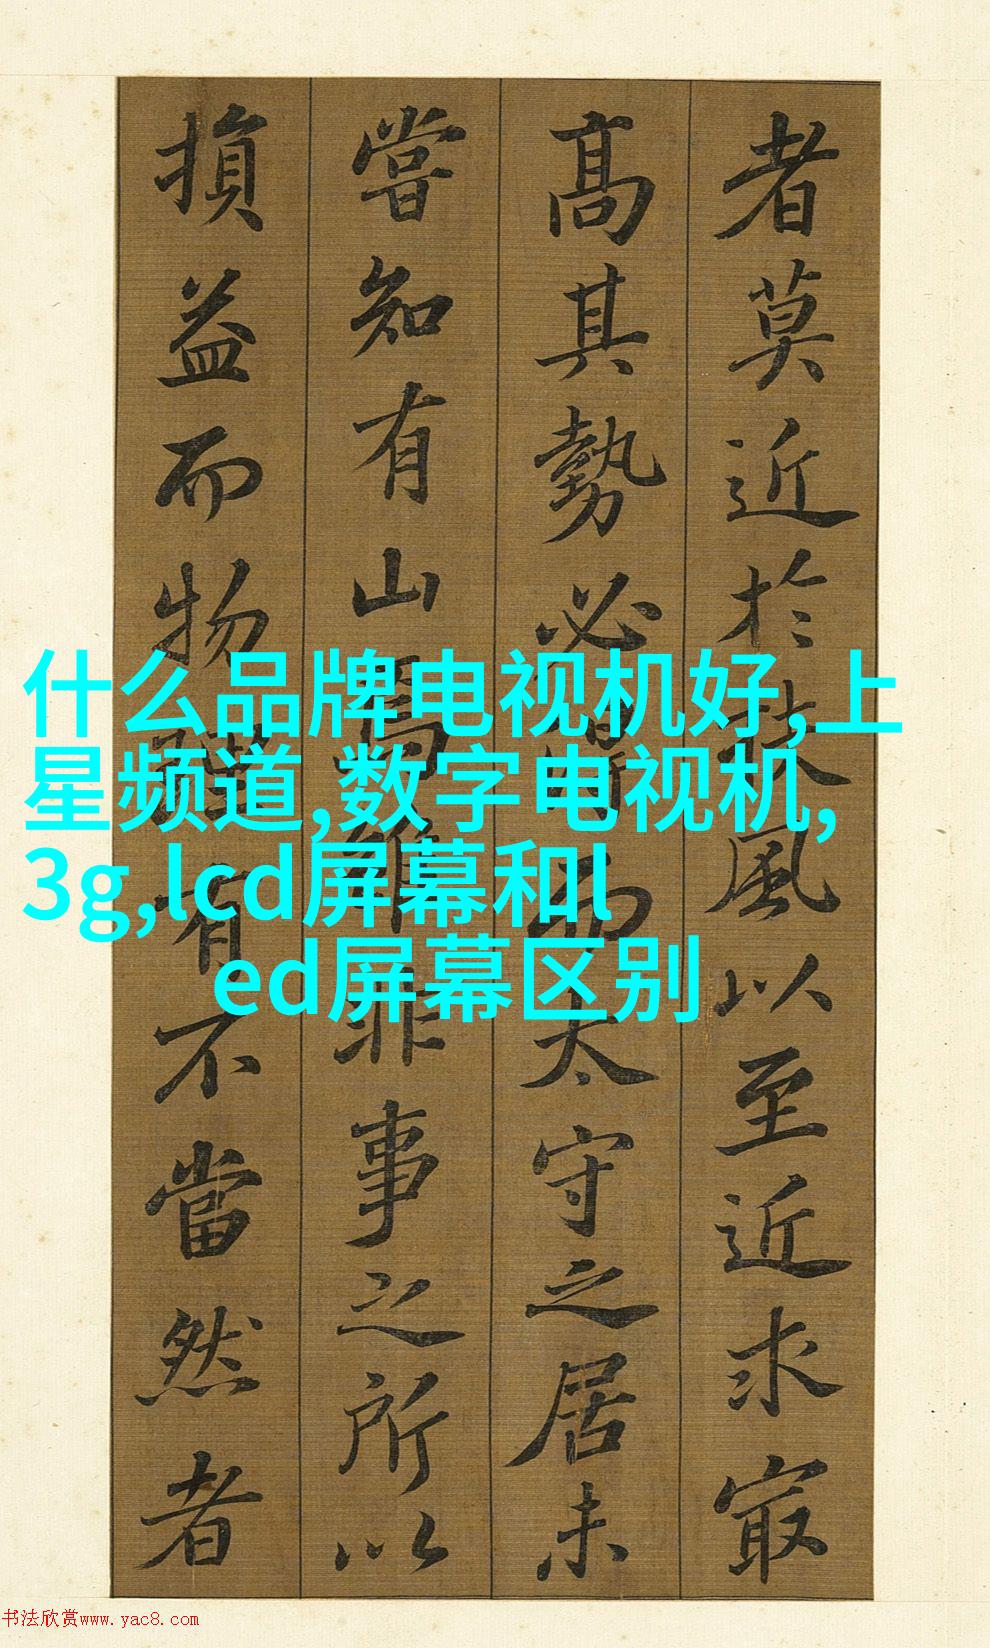 者莫近於扶風以至近求冣
高其勢必得而太守之居未
嘗知有山焉雖非事之所以
損益而物理有不當然者
什么品牌电视机好,上
星频道,数字电视机,
3g,lcd屏幕和l
ed屏幕区别
书法欣赏www.yac8.com